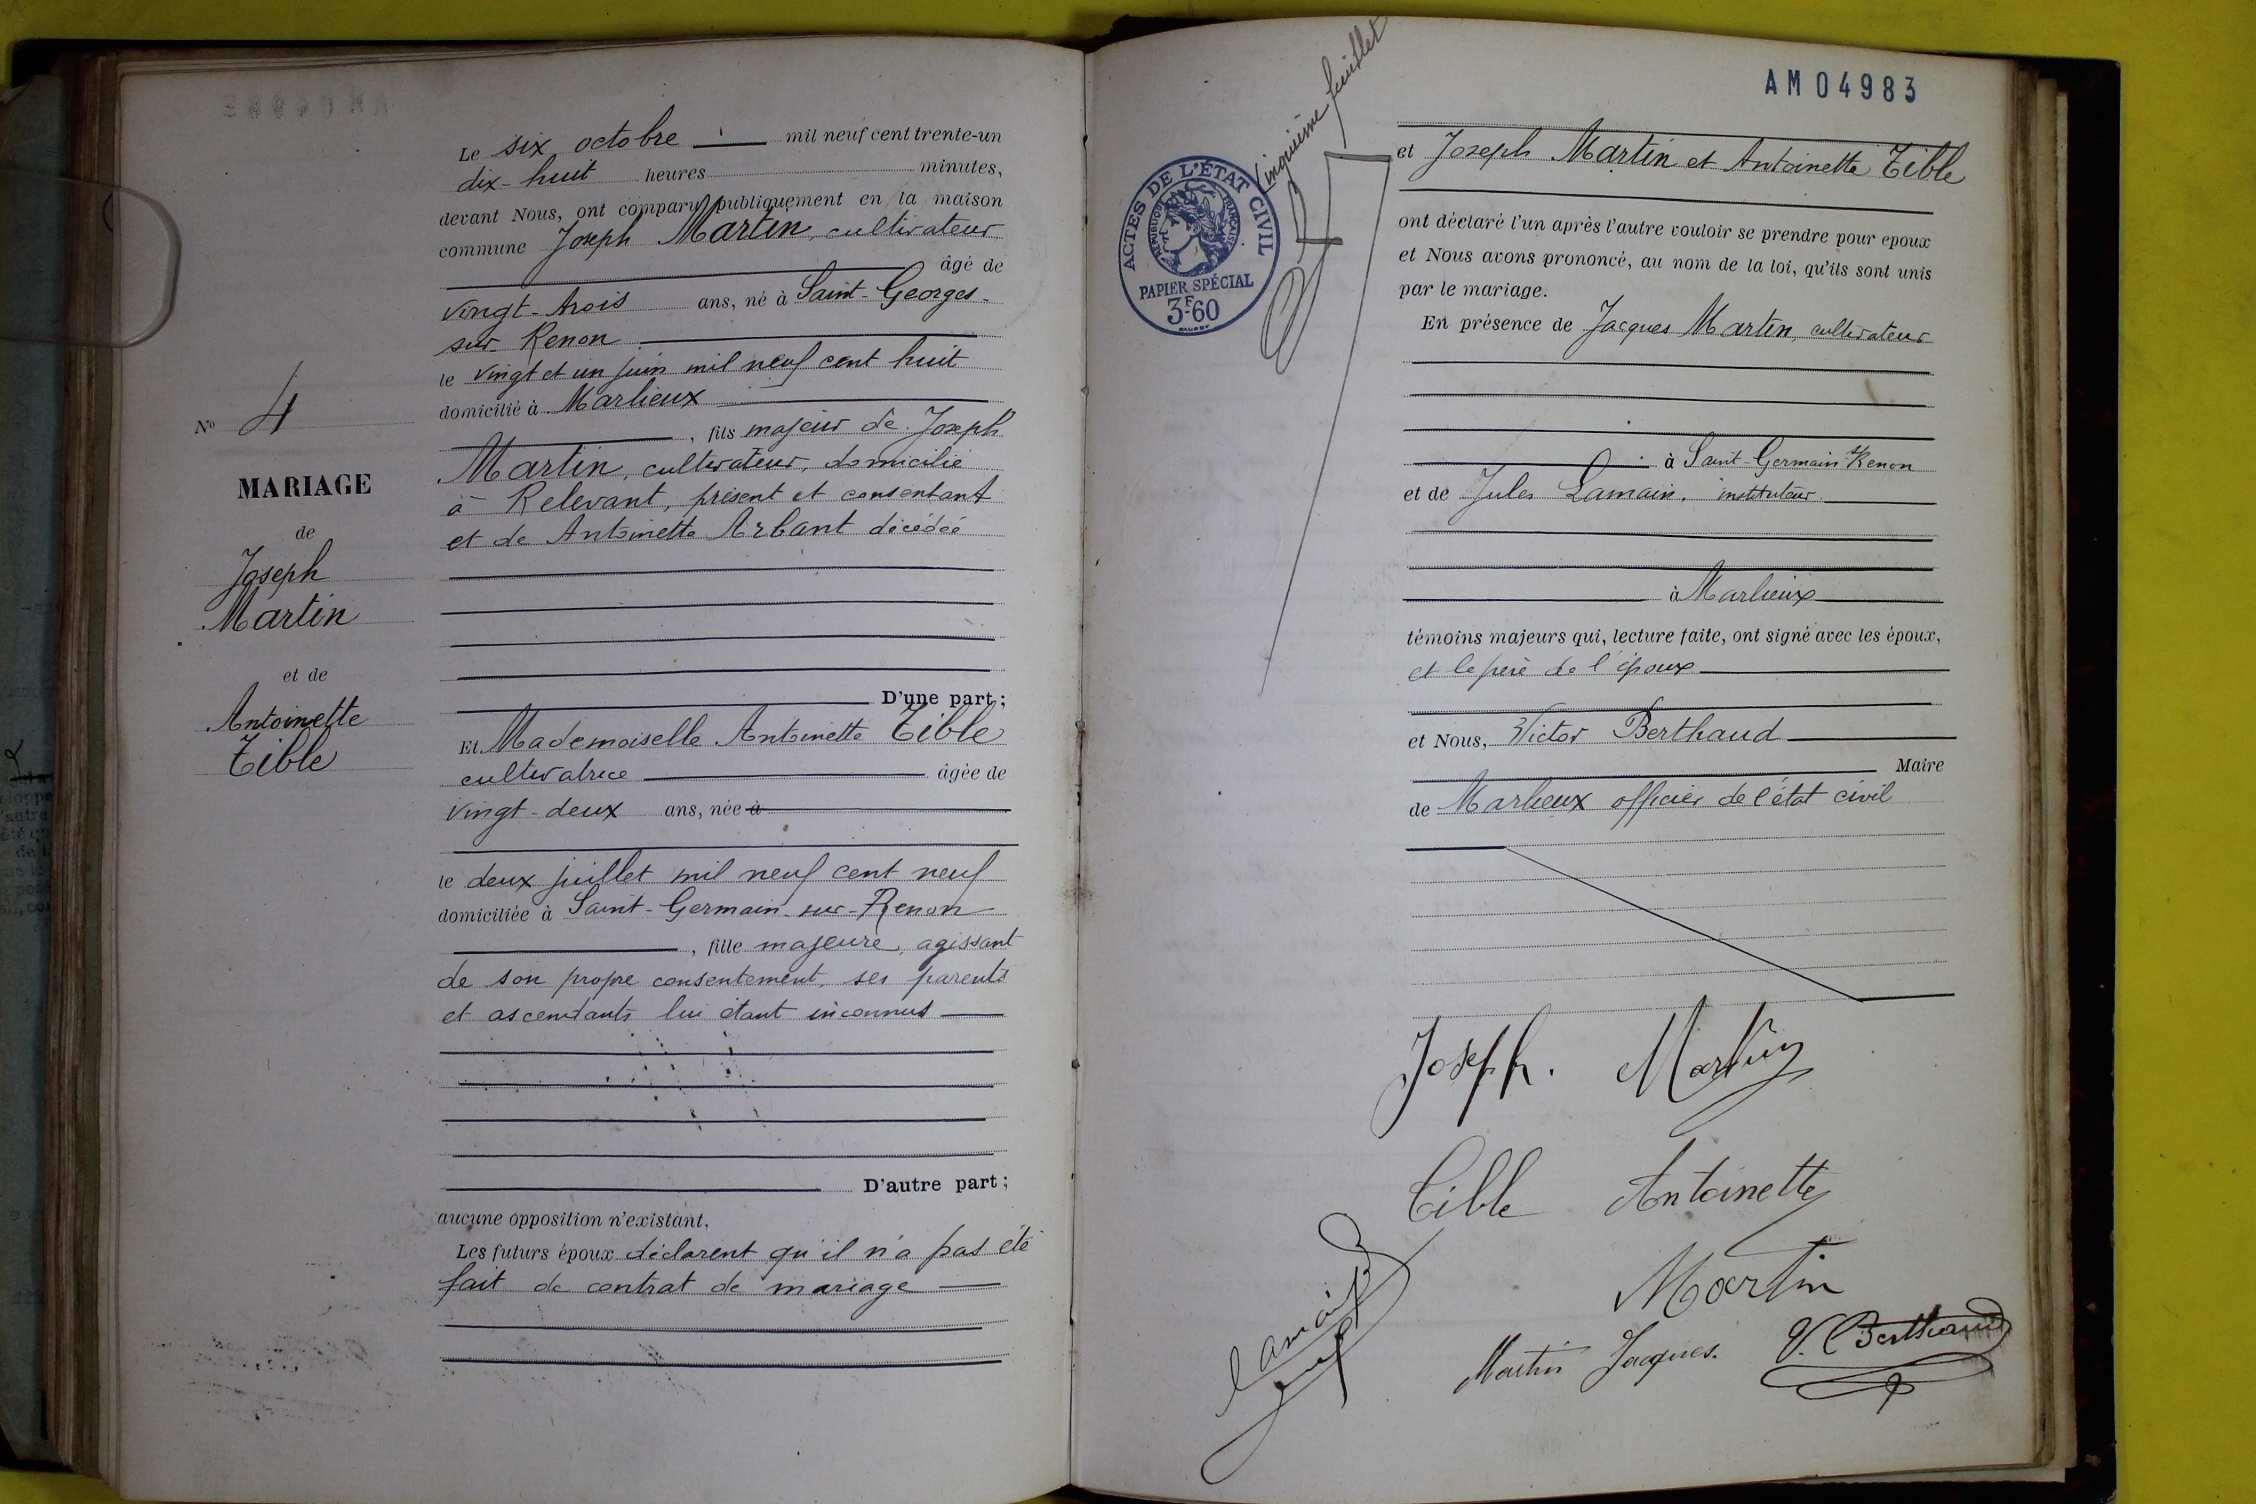 Le six octobre mil neuf cent trente-un
dix-huit heures minutes,
devant Nous, ont comparu publiquement en la maison
commune Joseph Martin, cultivateur
âgé de
vingt-trois ans, né à Saint-Georges-
sur Renon
le vingt et un juin mil neuf cent huit
domicilié à Marlieux
, fils majeur de Joseph
Martin, cultivateur, domicilié
à Relevant, présent et consentant
et de Antoinette Arbant décédée
D'une part;
Et Mademoiselle Antoinette Tible
cultivatrice âgée de
vingt-deux ans, née à
le deux juillet mil neuf cent neuf
domiciliée à Saint-Germain-sur-Renon
, fille majeure, agissant
de son propre consentement, ses parents
et ascendants lui étant inconnus
D'autre part;
aucune opposition n'existant,
Les futurs époux déclarent qu'il n'a pas été
fait de contrat de mariage
No 4
MARIAGE
de
Joseph
Martin
et de
Antoinette
Tible
AM 04983
Cinquième feuillet
ACTES DE L'ÉTAT CIVIL
RÉPUBLIQUE FRANÇAISE
PAPIER SPÉCIAL
3F60
et Joseph Martin et Antoinette Tible
ont déclaré l'un après l'autre vouloir se prendre pour époux
et Nous avons prononcé, au nom de la loi, qu'ils sont unis
par le mariage.
En présence de Jacques Martin, cultivateur
à Saint-Germain s/Renon
et de Jules Lamain, instituteur
à Marlieux
témoins majeurs qui, lecture faite, ont signé avec les époux,
et le père de l'époux
et Nous, Victor Berthaud
Maire
de Marlieux officier de l'état civil
Joseph. Martin
Tible Antoinette
Martin
Lamain
Martin Jacques. V. Berthaud